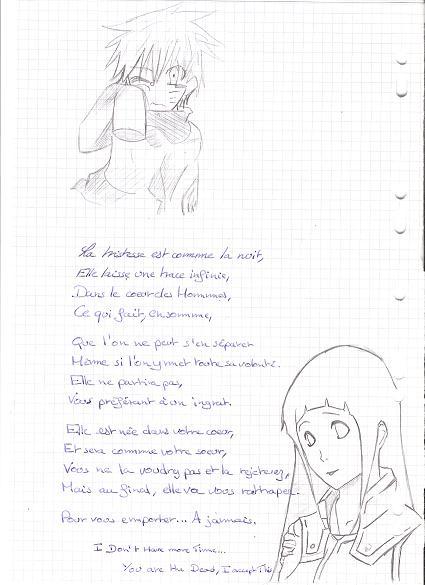 La tristesse est comme la nuit,
Elle laisse une trace infinie,
Dans le coeur des Hommes,
Ce qui fait, en somme,
Que l'on ne peut s'en séparer
Même si l'on y met toute sa volonté.
Elle ne partira pas,
Vous préférant à un ingrat.
Elle est née dans votre coeur,
Et sera comme votre soeur,
Vous ne la voudrez pas et la rejeterez,
Mais au final, elle va vous rattraper.
Pour vous emporter... A jamais.
I Don't Have more Time...
You are the Dead, I accept This